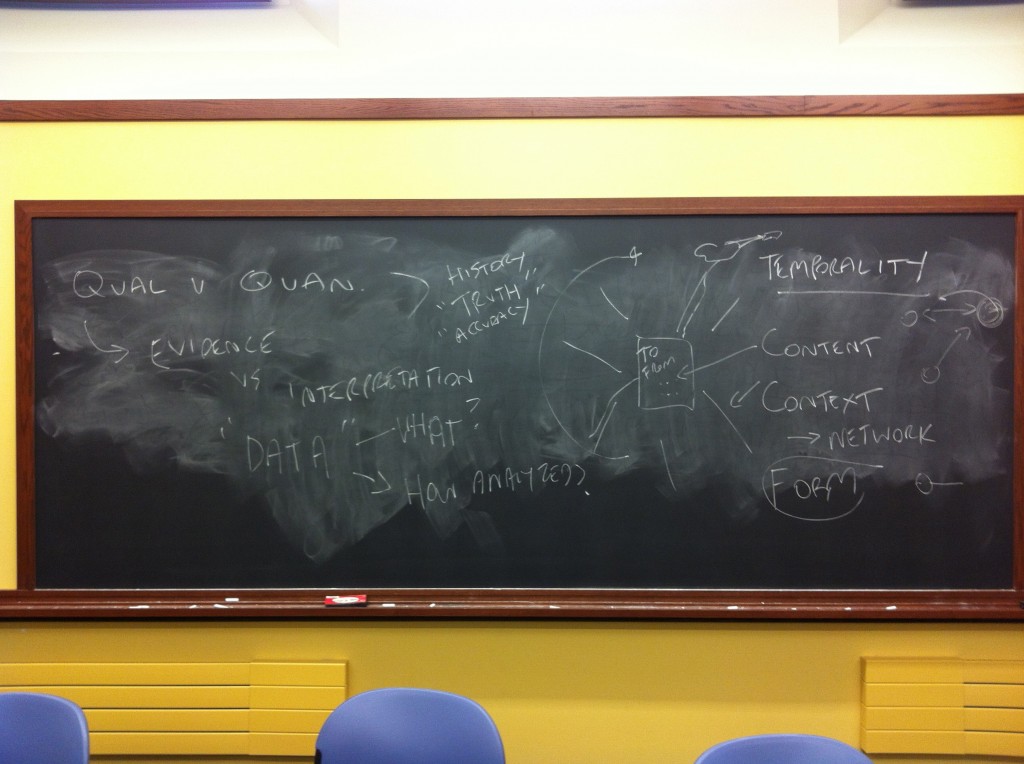 QUAL V QUAN.
HISTORY
"TRUTH"
"ACCURACY
EVIDENCE
VS
INTERPRETATION
"DATA" — WHAT?
→ HOW ANALYZED??
TO
FROM
TEMPORALITY
CONTENT
CONTEXT
→ NETWORK
FORM